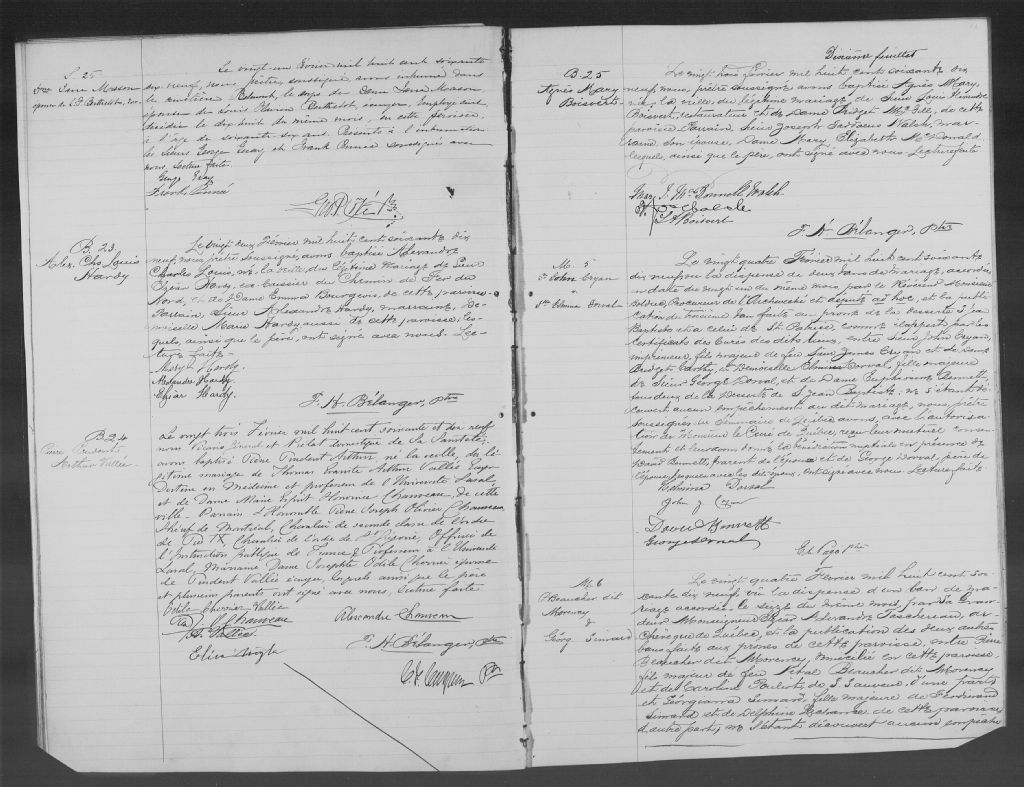 S. 25
Dme Jane Masson
épouse de L. P. Berthelot, Ecr.
Le vingt un Février mil huit cent soixante
dix neuf, nous prêtre soussigné, avons inhumé dans
le cimetière Belmont, le corps de Dame Jane Masson
épouse de Louis Berthelot, écuyer, Employé civil,
décédée le dix huit du même mois, en cette paroisse,
à l'âge de soixante six ans. Présents à l'inhumation
les Sieurs George Guay et Frank Pennée soussignés avec
nous. Lecture faite.
George Guay
Frank Pennée
B. 23.
Alex. Chs Louis
Hardy
Le vingt deux Février mil huit cent soixante dix
neuf, nous prêtre soussigné, avons baptisé Alexandre
Charles Louis, né la veille du légitime mariage de Sieur
Elzéar Hardy, caissier du Chemin de Fer du
Nord, et de Dame Emma Bourgeois, de cette paroisse.
Parrain, Sieur Alexandre Hardy, marraine, De-
moiselle Marie Hardy aussi de cette paroisse, les-
quels, ainsi que le père, ont signé avec nous. Lec-
ture faite.
Marie Hardy
Alexandre Hardy
Elzéar Hardy
F. H. Bélanger, Ptre
B. 24
Pierre Prudent
Arthur Vallée
Le vingt trois Février mil huit cent soixante et dix neuf
nous Vicaire Général et Prélat domestique de Sa Sainteté,
avons baptisé Pierre Prudent Arthur né la veille, du lé-
gitime mariage de Thomas Evariste Arthur Vallée Ecuyer
Docteur en Médecine et professeur de l'Université Laval,
et de Dame Marie Esprit Honorine Chauveau, de cette
ville. Parrain l'Honorable Pierre Joseph Olivier Chauveau
Shérif de Montréal, Chevalier de seconde classe de l'ordre
de Pie IX, Chevalier de l'ordre de St Grégoire, Officier de
l'Instruction publique de France & Professeur à l'Université
Laval, Marraine Dame Josephte Odile Chevrier épouse
de Prudent Vallée écuyer, lesquels ainsi que le père
et plusieurs parents ont signé avec nous, lecture faite
Odile Chevrier Vallée
Chauveau
A. Vallée
Alexandre Chauveau
F. H. Bélanger, Ptre
Dixième feuillet
B. 25
Agnès Mary
Boisvert
Le vingt trois Février mil huit cent soixante dix
neuf, nous, prêtre soussigné avons baptisé Agnès Mary,
née la veille, du légitime mariage de Sieur Louis Alexandre
Boisvert, restaurateur et de Dame Bridget McGill, de cette
paroisse. Parrain, Sieur Joseph Walsh, mar-
raine, son épouse, Dame Mary Elizabeth McDonald
lesquels, ainsi que le père, ont signé avec nous. Lecture faite
Mary J. McDonnell Walsh
L. A. Boisvert
F. H. Bélanger, Ptre
M. 5
Sr John Cryan
&
Dlle Elmina Dorval
Le vingt quatre Février mil huit cent soixante
dix neuf, vu la dispense de deux bans de mariage, accordée
en date du vingt un du même mois, par le Révérend Monsieur
Bolduc, Procureur de l'Archevêché et député ad hoc, et la publi-
cation du troisième ban faite au prône de la desserte St Jean
Baptiste et à celui de St Patrice, comme il appert par les
certificats des Curés des dits lieux, entre Sieur John Cryan,
imprimeur, fils majeur de feu Sieur James Cryan et de Dame
Bridget Carthy, et Demoiselle Elmina Dorval, fille majeure
de Sieur George Dorval, et de Dame Euphrosine Bennett,
tous deux de la desserte de St Jean Baptiste; ne s'étant dé-
couvert aucun empêchement au dit mariage, nous, prêtre
soussigné, du Séminaire de Québec, avons, avec l'autorisa-
tion de Monsieur le Curé de Québec, reçu leur mutuel consen-
tement et leur avons donné la bénédiction nuptiale en présence de
David Bennett, parent de l'époux et de George Dorval, père de
l'épouse, lesquels avec les dits époux, ont signé avec nous. Lecture faite.
Elmina Dorval
John J. Cryan
David Bennett
George Dorval
Ed. Pagé Ptre
M. 6
P. Beaucher dit
Morency
&
Géorg. Simard
Le vingt quatre Février mil huit cent soi-
xante dix neuf vu la dispense d'un ban de ma-
riage accordée le seize du même mois, par Sa Gran-
deur Monseigneur Elzéar Alexandre Taschereau, Ar-
chevêque de Québec, et la publication des deux autres
bans faite aux prônes de cette paroisse, entre Pierre
Beaucher dit Morency, domicilié en cette paroisse,
fils majeur de feu Vital Beaucher dit Morency
et de Caroline de St Sauveur, d'une part;
et Géorgianna Simard, fille majeure de Ferdinand
Simard et de Delphine de cette paroisse,
d'autre part; ne s'étant découvert aucun empêche